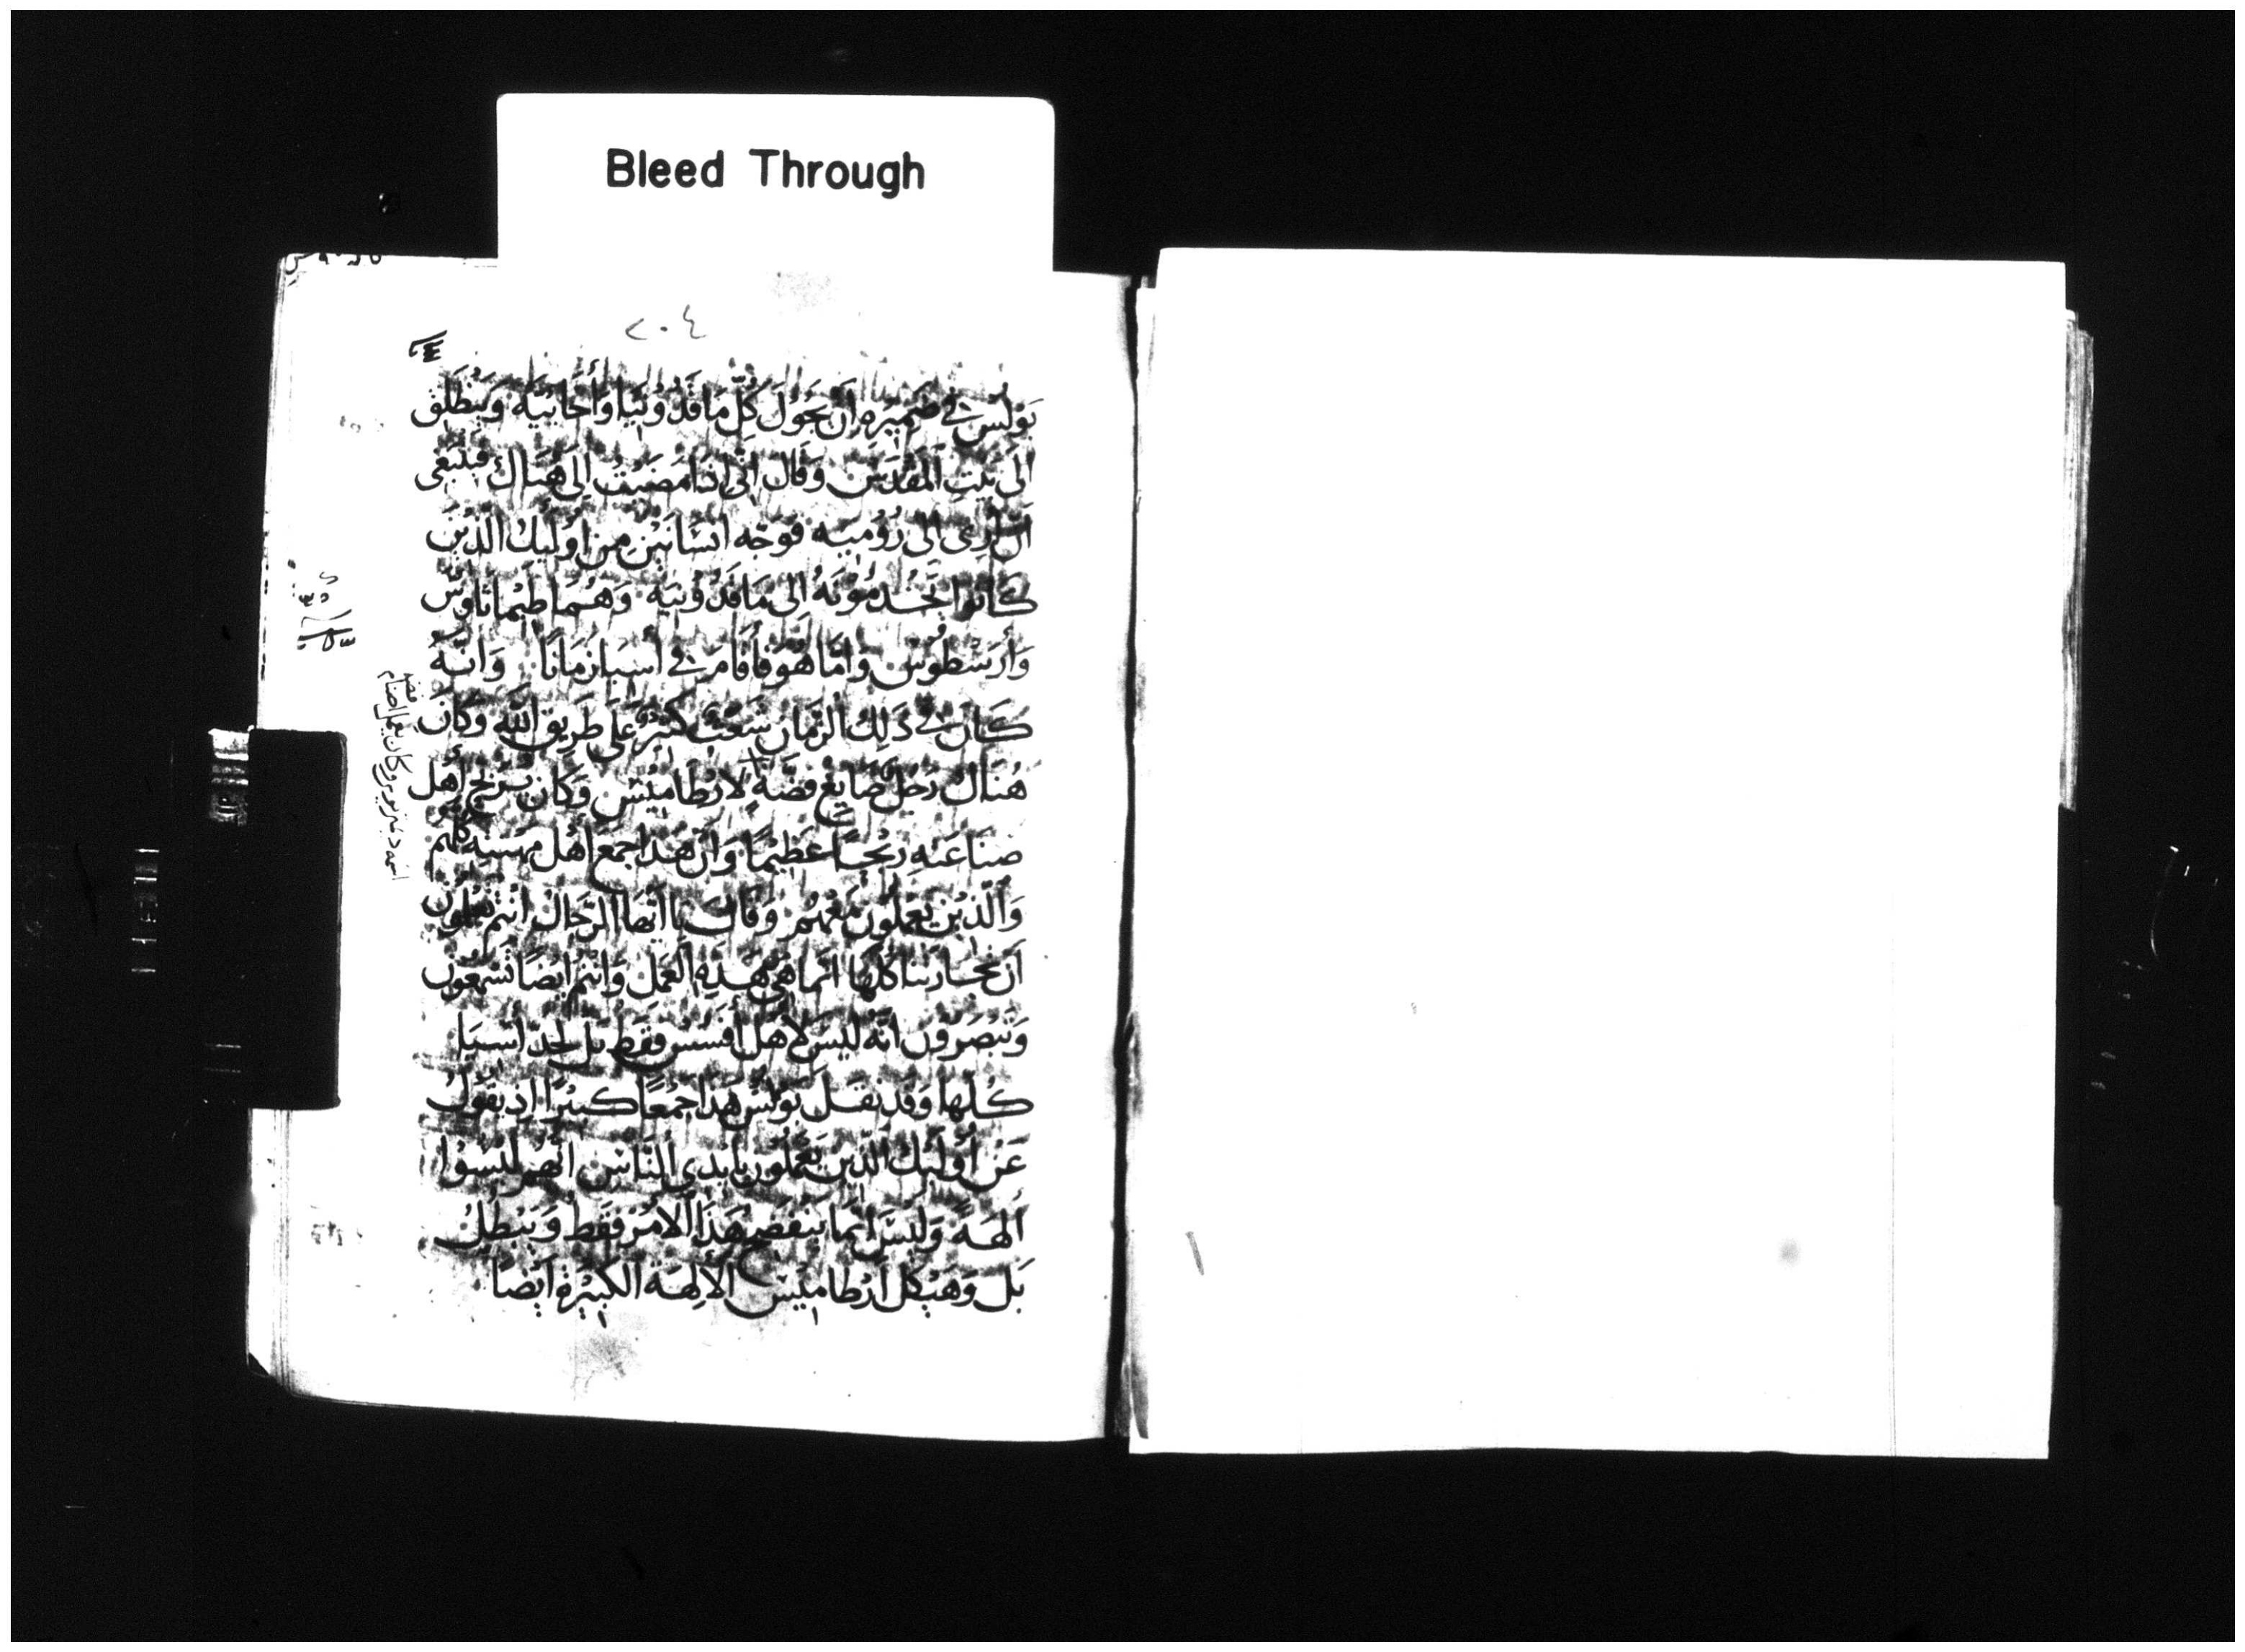 Bleed Through
٢٠٤
بَوْلُسْ في ضَمِيْرِه اِنْ يَجُوْلَ كُلَّ مَاقَدُوْنِيَا وَأَخَائِيَه وَيَنْطَلِقَ
الَى بَيْتِ اَلمَقْدِسْ وَقَال انِّي اذَا مَضَيْتُ اِلَى هُنَاكَ فَيَنْبَغِى
انْ أُرِى الى رُوْمِيَه فوَجّه انسَانَيْنِ مِن اوُلَيِكَ الذِيْنَ
كَانوا يَخْدُمُوْنَهُ الى مَاقَدُوْنِيَه وَهُمَا طِيْمَاثَاوسْ
وَأرَسْطُوسْ وَامَّا هُوَ فأقَامَ في أسِيَا زمَانًا وَانَّهُ
كَانَ في ذَلِكَ الزمَانِ شَغْبٌ كَثِيْرٌ عَلَى طَرِيق الله وكَانَ
هُنَاكَ رَجُلٌ صَايِغ فضّةٍ لارْطَاميْسْ وَكَانَ يُرَبِّح أَهْل
صنَاعَتِهِ رِبْحًا عَظِيْمًا وَانْ هَذا جمَع أهْل مهْنتِه كلهُم
وَالّذيْنَ يَعْمَلُون مَعَهُم وَقَال يا أيّهَا الرِجَال انْتم تعلمون
اَنَّ تجارَتنا كُلّهَا انمَا هيَ هَذِهِ العَمَل وَانتم ايْضًا تَسْمَعُون
وَتُبْصرُوْن انّه ليسَ لاهْل أفسُسْ فقط بل لجلّ أسيَا
كُلّها وَقد نقَل بَوْلُسْ هَذا جَمْعًا كَبيْرًا اِذ يَقولُ
عَنْ أُوْلَئِكَ الّذِين يَعْمَلُون بايدى النَّاس انّهم لَيْسُوْا
الهَةً وَليسَ انمَا يَنفَضِح هَذا الامْر فقط وَيَبْطُلُ
بَل وَهَيْكل اَرْطاميْس الالِهَة الكَبيْرَة ايْضًا